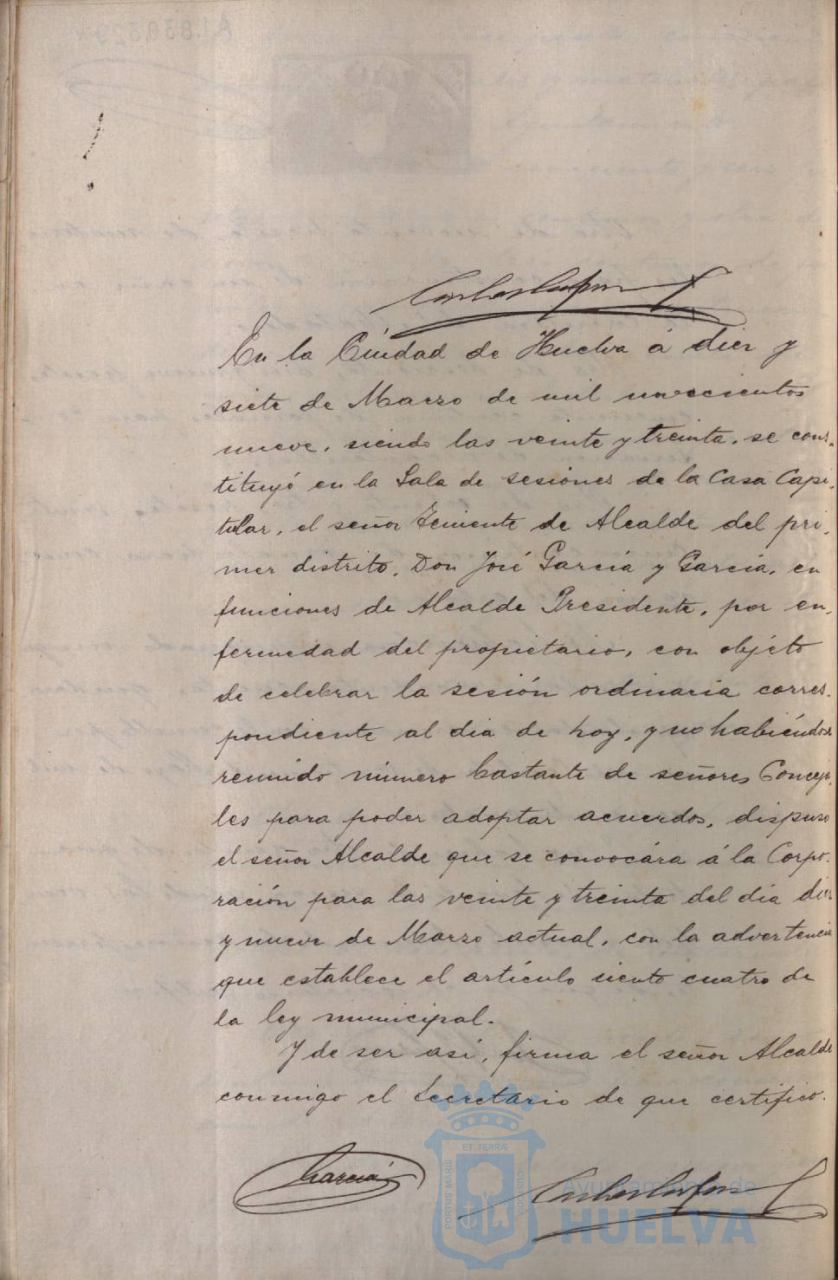 En la Ciudad de Huelva á diez y
siete de Marzo de mil novecientos
nueve, siendo las veinte y treinta, se cons-
tituyó en la Sala de sesiones de la Casa Capi-
tular, el señor Teniente de Alcalde del pri-
mer distrito, Don José García y García, en
funciones de Alcalde Presidente, por en-
fermedad del propietario, con objéto
de celebrar la sesión ordinaria corres-
pondiente al dia de hoy, y no habiéndose
reunido número bastante de señores Conceja-
les para poder adoptar acuerdos, dispuso
el señor Alcalde que se convocára á la Corpo-
ración para las veinte y treinta del dia diez
y nueve de Marzo actual, con la advertencia
que establece el artículo ciento cuatro de
la ley municipal.
Y de ser así, firma el señor Alcalde
conmigo el Secretario de que certifico.
García
Ayuntamiento de
HUELVA
PORTUS MARIS
ET TERRÆ
CUSTODIA